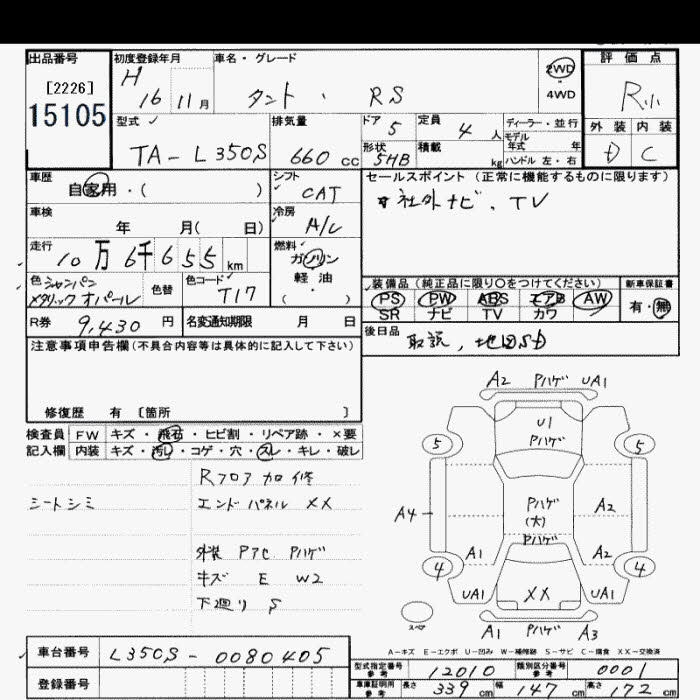 出品番号 初度登録年月 車名・グレード 評価点
[2226] H 16 11月 タント・ RS 2WD R小
15105 4WD
型式 排気量 ドア 5 定員 4人 ディーラー・並行 外装 内装
モデル年式 年
TA-L350S 660cc 形状 5HB 積載 kg ハンドル 左・右 D C
車歴 自家用・( ) シフト CAT セールスポイント (正常に機能するものに限ります)
車検 年 月( 日) 冷房 A/C 社外ナビ、TV
走行 10万6千655km 燃料 ガソリン
軽油
( )
色 シャンパン 色替 色コード T17 装備品 (純正品に限り○をつけてください) 新車保証書
メタリックオパール PS PW ABS エアB AW 有・無
SR ナビ TV カワ
R券 9,430円 名変通知期限 月 日 後日品 取説,地図SD
注意事項申告欄 (不具合内容等は具体的に記入して下さい)
修復歴 有 [箇所 ]
検査員 FW キズ・飛石・ヒビ割・リペア跡・×要
記入欄 内装 キズ・汚れ・コゲ・穴・スレ・キレ・破レ
Rフロア加修
シートシミ エンドパネル XX
外装 Pアセ Pハゲ
キズ E W2
下廻り S
A2 Pハゲ UA1
U1
Pハゲ
5 5
Pハゲ
(大)
A4 A2
Pハゲ
A1 A2
4 4
UA1 XX UA1
スペア
A1 Pハゲ A3
A-キズ E-エクボ U-凹み W-補修跡 S-サビ C-腐食 XX-交換済
車台番号 L350S-0080405
登録番号
型式指定番号 参考 12010 類別区分番号 参考 0001
車庫証明用 参考 長さ 339cm 幅 147cm 高さ 172cm